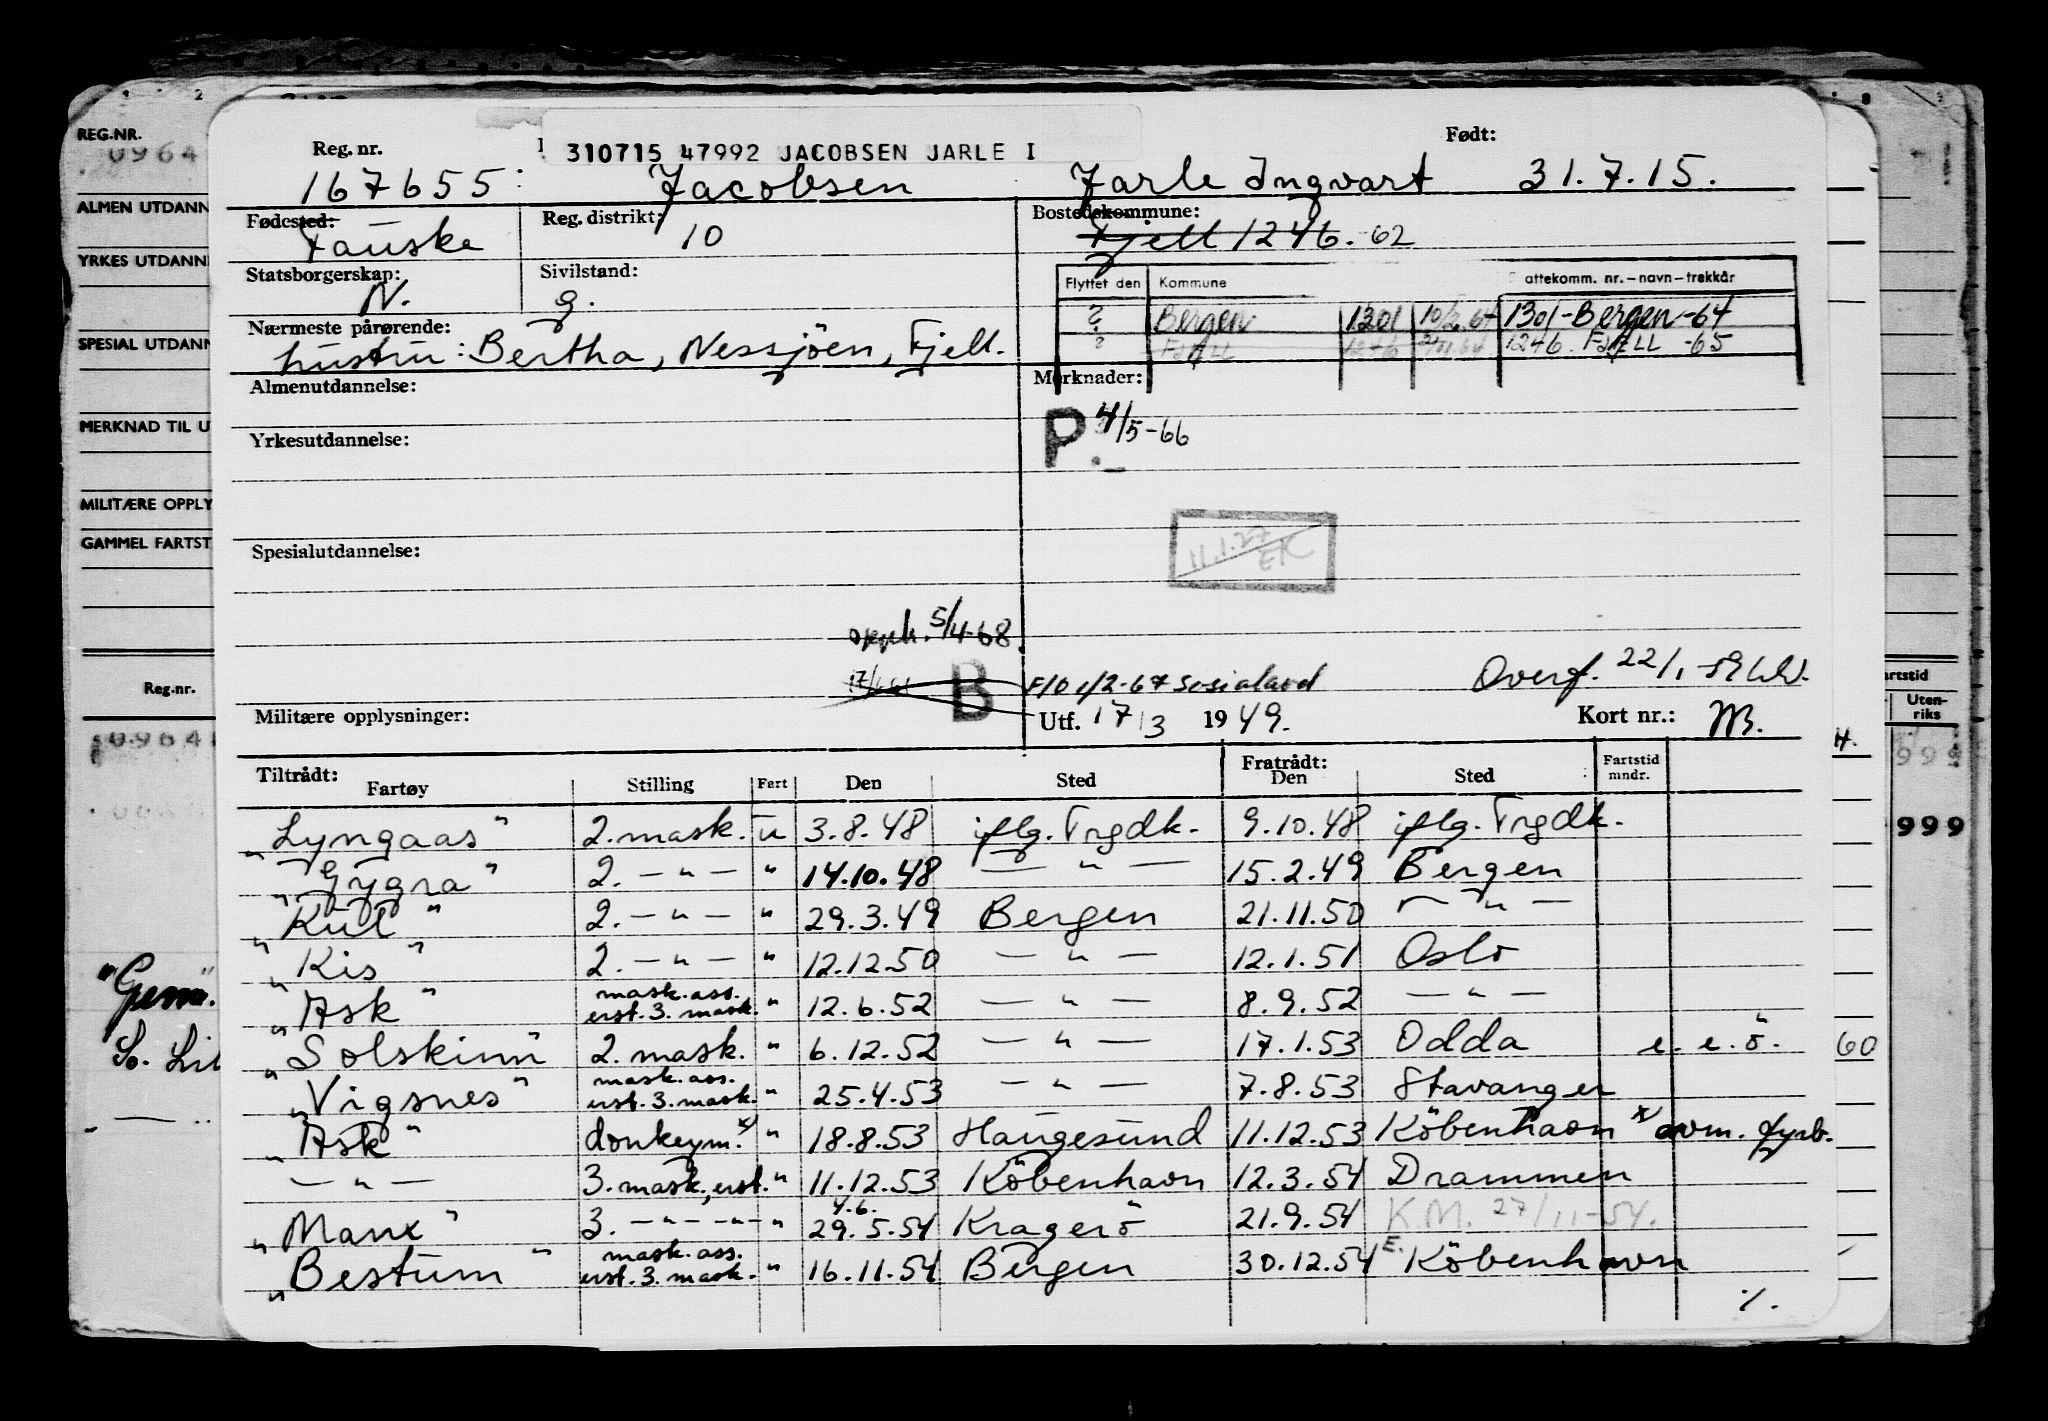 REG.NR.
0964
ALMEN UTDANN
YRKES UTDANN
SPESIAL UTDANN
MERKNAD TIL U
MILITÆRE OPPLY
GAMMEL FARTST
Reg.nr.
"Gem".
So. Lit
Reg. nr. 310715 47992 JACOBSEN JARLE I Født:
167655 Jacobsen Jarle Ingvart 31.7.15.
Fødested: Reg. distrikt: Bostedskommune:
Fauske 10 Fjell 1246. 62
Statsborgerskap: Sivilstand:
N. g.
Flyttet den Kommune attekomm. nr. – navn – trekkår
? Bergen 1301 1301-Bergen-64
? FJELL 1246 1246. FJELL -65
Nærmeste pårørende:
hustru: Bertha, Nessjöen, Fjell.
Almenutdannelse: Merknader:
P 4/5-66
Yrkesutdannelse:
11.1.27
EK
Spesialutdannelse:
opph. 5/4-68.
B F/O 1/2-67 Sosialavd
Overf. 22/1-59
Militære opplysninger: Utf. 17/3 1949. Kort nr.: M.
Tiltrådt: Fratrådt:
Fartøy Stilling Fart Den Sted Den Sted Fartstid mndr.
"Lyngaas" 2. mask. u 3.8.48 iflg. Trgdk. 9.10.48 iflg. Trgdk.
"Gygra" 2. — " — " 14.10.48 — " — 15.2.49 Bergen
"Kul" 2. — " — " 29.3.49 Bergen 21.11.50 — " —
"Kis" 2. — " — " 12.12.50 — " — 12.1.51 Oslo
"Ask" mask. ass. erst. 3. mask. " 12.6.52 — " — 8.9.52 — " —
"Solskinn" 2. mask. " 6.12.52 — " — 17.1.53 Odda e. e. ö.
"Vigsnes" mask. ass. erst. 3. mask. " 25.4.53 — " — 7.8.53 Stavanger
"Ask" donkeym. x) " 18.8.53 Haugesund 11.12.53 Köbenhavn x) avm. fyrb.
— " — 3. mask., erst. " 11.12.53 Köbenhavn 12.3.54 Drammen
"Manx" 3. — " — " — " 4.6. 29.5.54 Kragerö 21.9.54 K.M. 27/11-54.
"Bestum" mask. ass. erst. 3. mask. " 16.11.54 Bergen 30.12.54 E. Köbenhavn
./.
H.
60
artstid
Uten-
riks
999
999